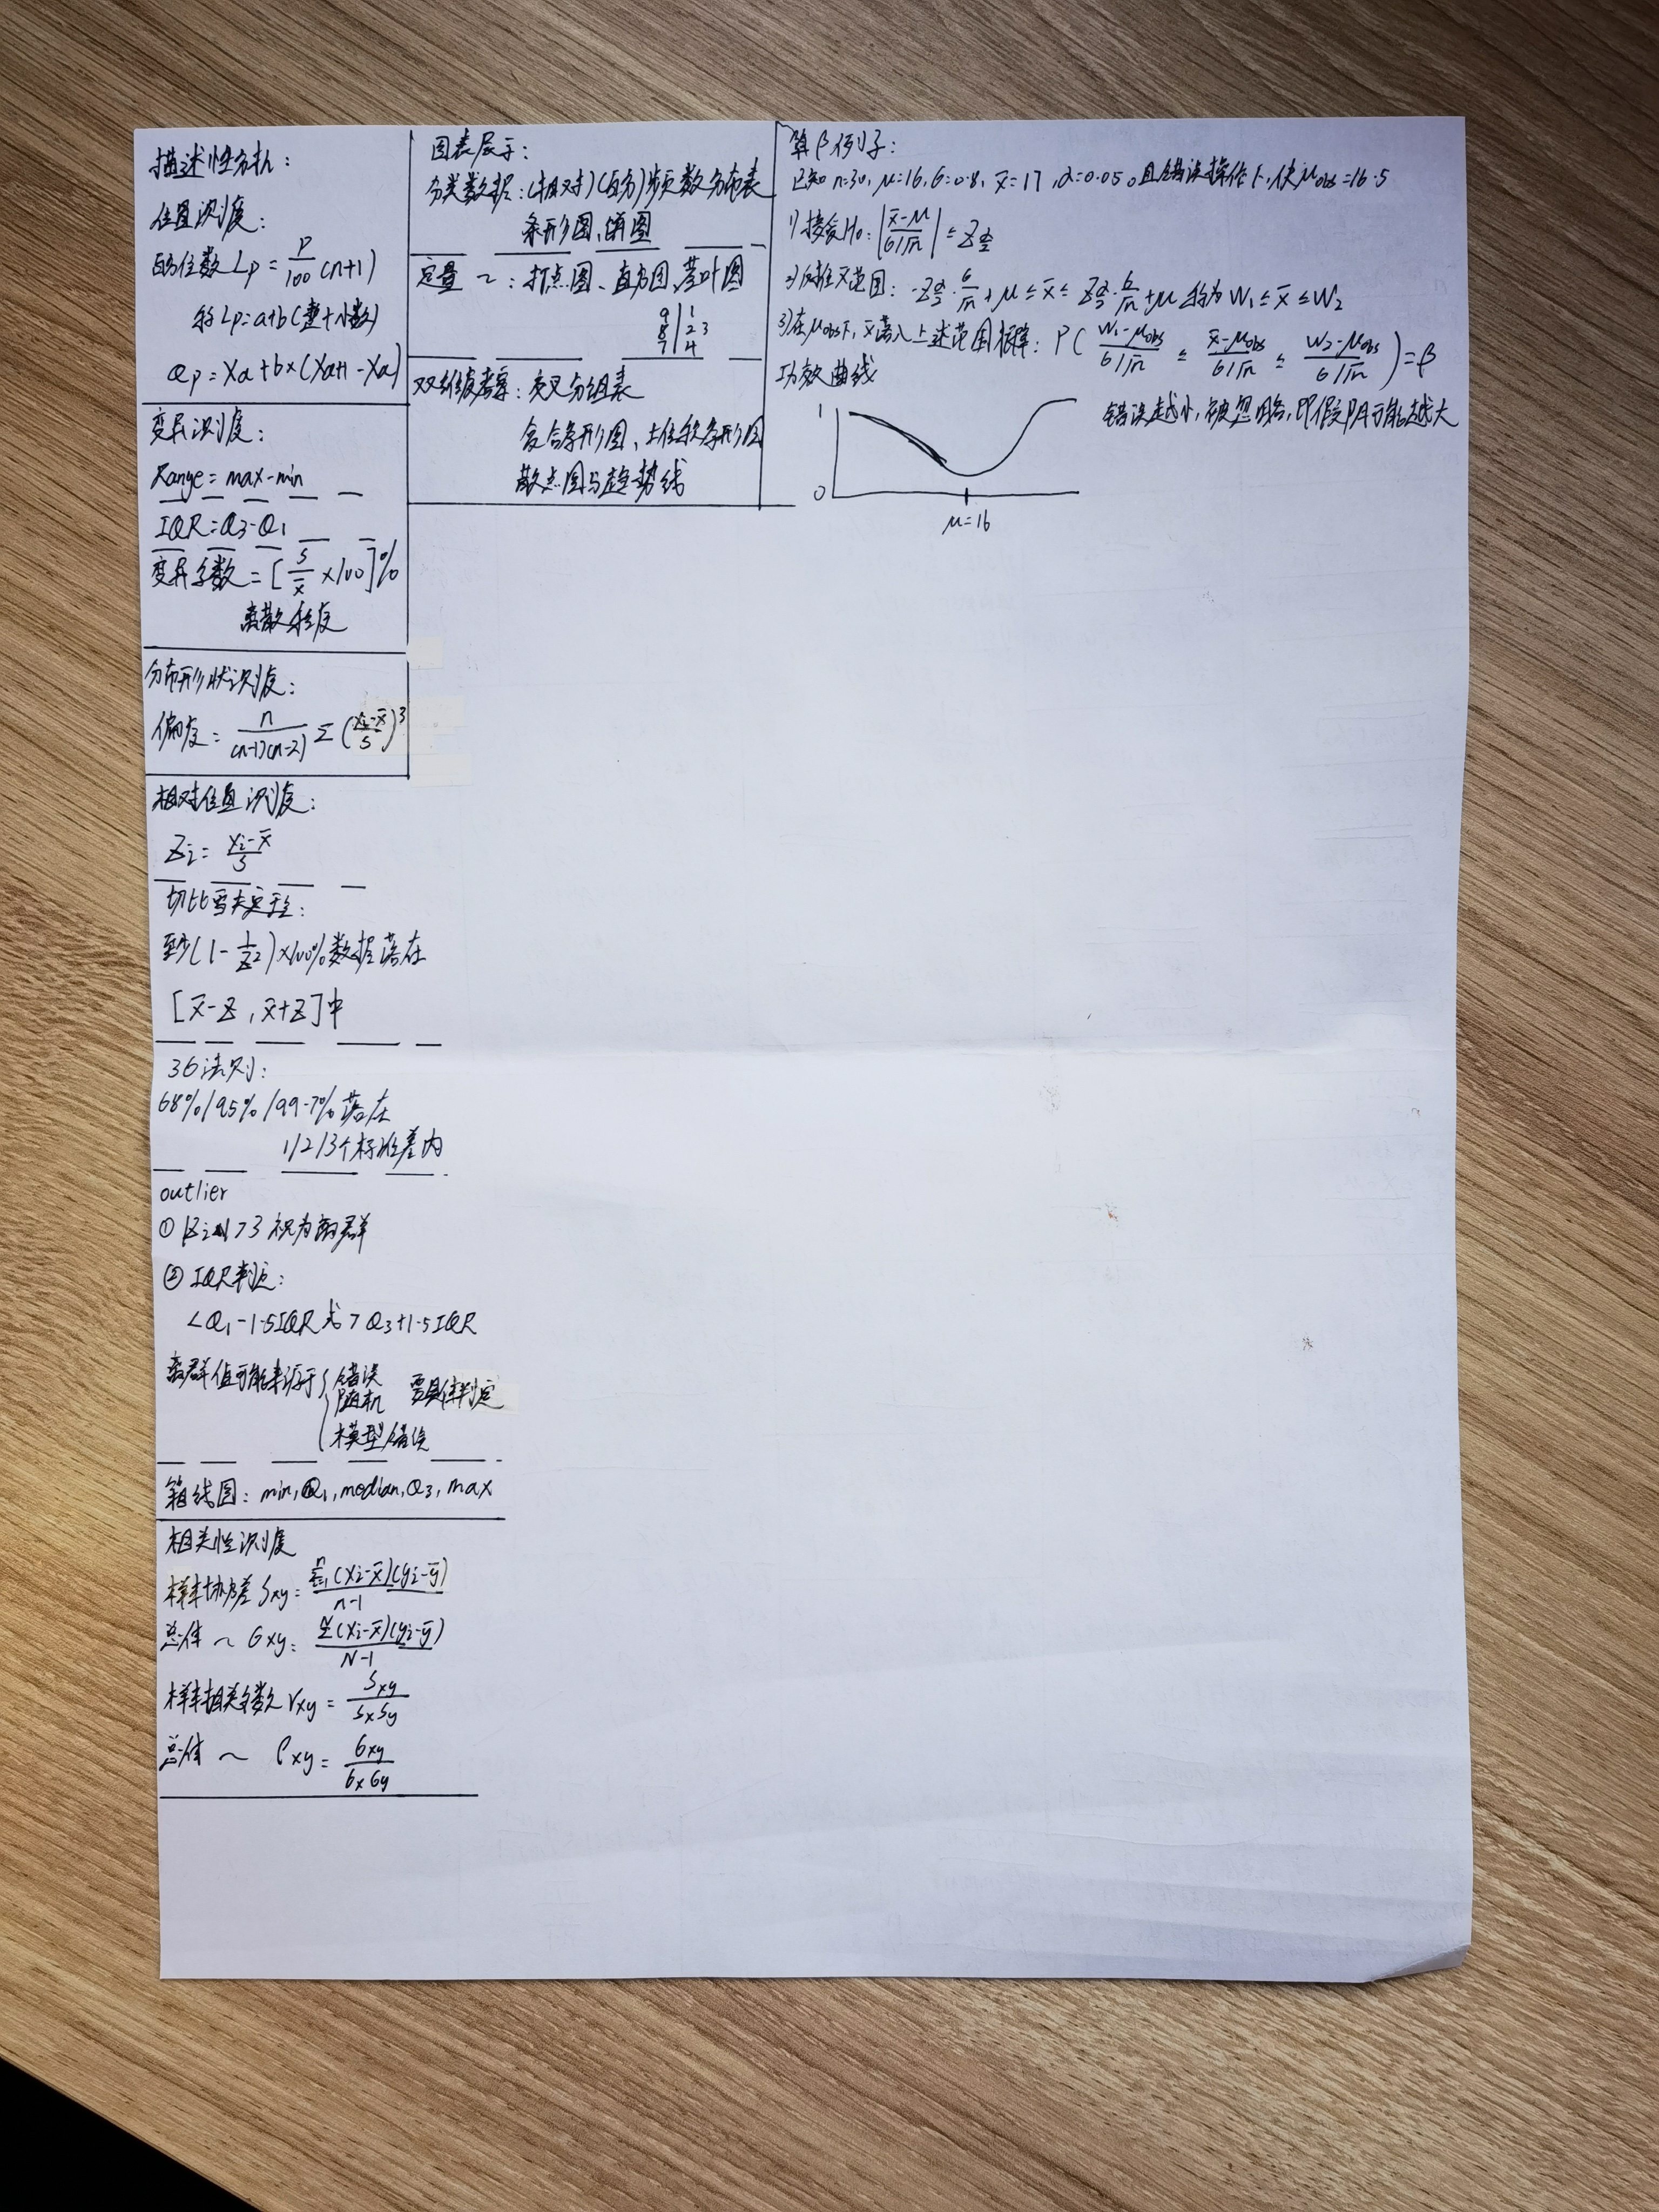 描述性分析：
位置测度：
百分位数 Lp = P/100 (n+1)
将 Lp = a+b (整+小数)
Qp = Xa + b×(Xa+1 - Xa)
变异测度：
Range = max-min
IQR = Q3-Q1
变异系数 = [s/x̄ ×100]%
离散程度
分布形状测度：
偏度 = n/(n-1)(n-2) Σ (xi-x̄/s)³
相对位置测度：
Zi = xi-x̄/s
切比雪夫定理：
至少(1-1/Z²)×100%数据落在
[x̄-Z , x̄+Z]中
3σ法则：
68%/95%/99.7% 落在
1/2/3个标准差内
outlier
① |Zi|>3 视为离群
② IQR判定：
<Q1-1.5IQR 或 >Q3+1.5IQR
离群值可能来源于{错误
随机 要具体判定
模型错误
箱线图：min, Q1, median, Q3, max
相关性测度
样本协方差 Sxy = Σ(xi-x̄)(yi-ȳ)/n-1
总体 ~ σxy = Σ(xi-x̄)(yi-ȳ)/N-1
样本相关系数 rxy = Sxy/SxSy
总体 ~ ρxy = σxy/σxσy
图表展示：
分类数据：(相对)(百分)频数分布表
条形图、饼图
定量 ~ ：打点图、直方图、茎叶图
9|1
8|2 3
7|4
双维度考察：交叉分组表
复合条形图、
散点图与趋势线
算β例子：
已知 n=30, μ=16, σ=0.8, x̄=17, α=0.05。且错误操作下, 使μobs=16.5
1) 接受H0：|x̄-μ / σ/√n| ≤ Zα/2
2) 反推x̄范围：-Zα/2·σ/√n+μ ≤ x̄ ≤ Zα/2·σ/√n+μ 称为 W1 ≤ x̄ ≤ W2
3) 在μobs下, x̄落入上述范围概率：P( W1-μobs / σ/√n ≤ x̄-μobs / σ/√n ≤ W2-μobs / σ/√n ) = β
功效曲线
错误越小, 被忽略, 即假阴可能越大
1
0
μ=16